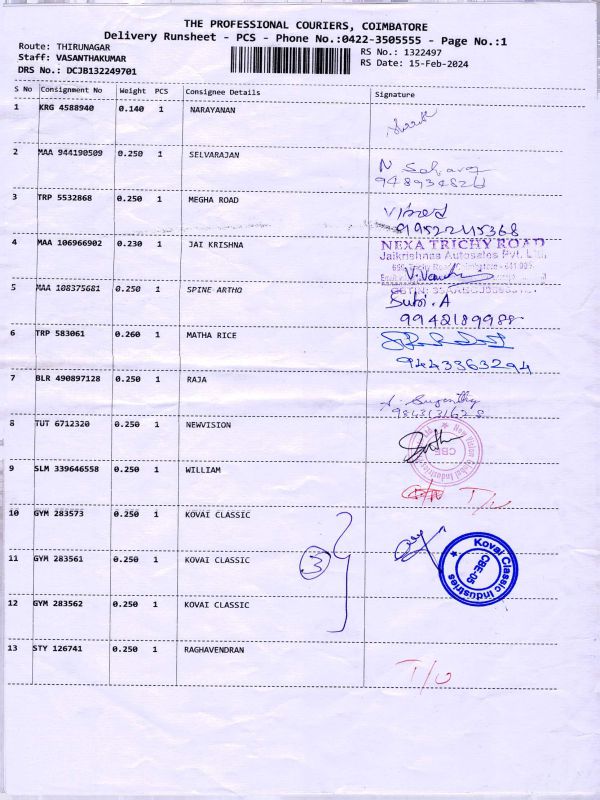 THE PROFESSIONAL COURIERS, COIMBATORE
Delivery Runsheet - PCS - Phone No.:0422-3505555 - Page No.:1
Route: THIRUNAGAR
RS No.: 1322497
Staff: VASANTHAKUMAR
RS Date: 15-Feb-2024
DRS No.: DCJB132249701
S No Consignment No Weight PCS Consignee Details Signature
1 KRG 4588940 0.140 1 NARAYANAN
2 MAA 944190509 0.250 1 SELVARAJAN
3 TRP 5532868 0.250 1 MEGHA ROAD
9952245368
4 MAA 106966902 0.230 1 JAI KRISHNA
NEXA TRICHY ROAD
Jaikrishnas Autosales Pvt. Ltd.
5 MAA 108375681 0.250 1 SPINE ARTHO
Subi. A
9942189988
6 TRP 583061 0.260 1 MATHA RICE
9443363294
7 BLR 490897128 0.250 1 RAJA
8 TUT 6712320 0.250 1 NEWVISION
New Vision Global Industries
CBE
9 SLM 339646558 0.250 1 WILLIAM
T/U
10 GYM 283573 0.250 1 KOVAI CLASSIC
11 GYM 283561 0.250 1 KOVAI CLASSIC
3
Kovai Classic Industries
CBE-05
12 GYM 283562 0.250 1 KOVAI CLASSIC
13 STY 126741 0.250 1 RAGHAVENDRAN
T/U